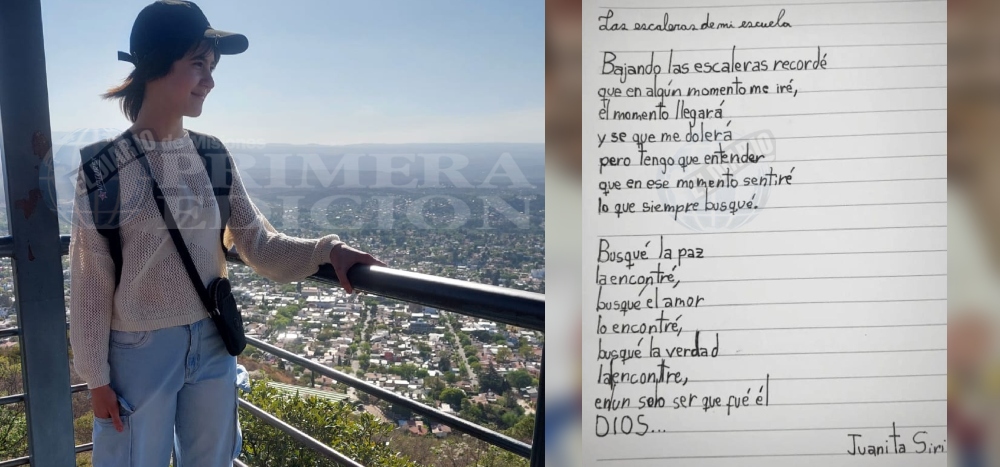 EL DIARIO de Misiones
PRIMERA
EDICION
Las escaleras de mi escuela
Bajando las escaleras recordé
que en algún momento me iré,
el momento llegará
y se que me dolerá
pero tengo que entender
que en ese momento sentiré
lo que siempre busqué.
Busqué la paz
la encontré,
busqué el amor
lo encontré,
busqué la verdad
la encontre,
en un solo ser que fué él
DIOS...
Juanita Siri